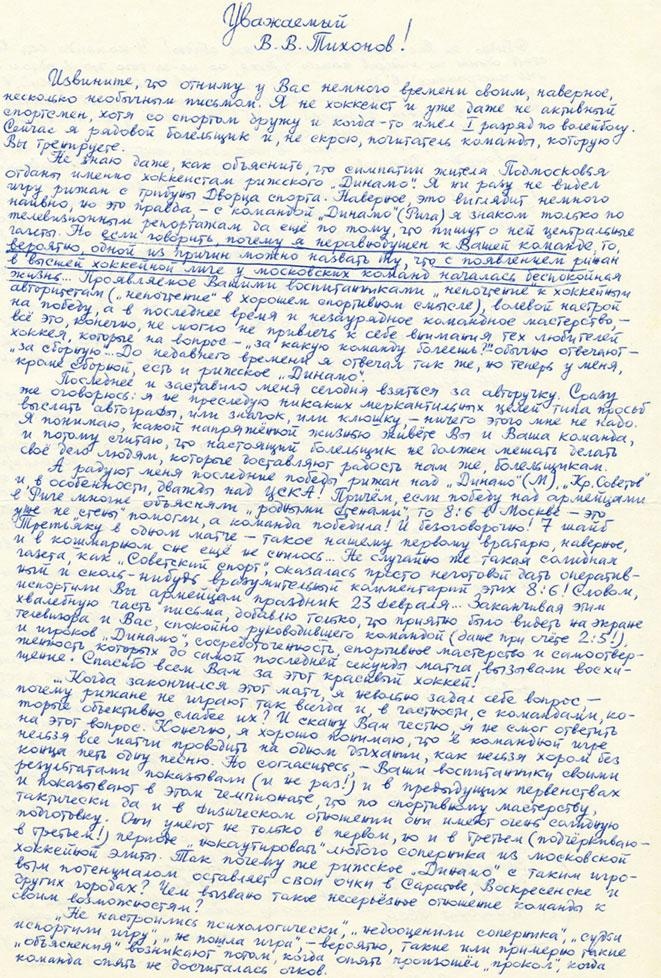 Уважаемый
В.В. Тихонов!
Извините, что отниму у Вас немного времени своим, наверное,
несколько необычным письмом. Я не хоккеист и уже даже не активный
спортсмен, хотя со спортом дружу и когда-то имел I разряд по волейболу.
Сейчас я рядовой болельщик и, не скрою, почитатель команды, которую
Вы тренируете.
Не знаю даже, как объяснить, что симпатии жителя Подмосковья
отданы именно хоккеистам рижского „Динамо". Я ни разу не видел
игру рижан с трибуны Дворца спорта. Наверное, это выглядит немного
наивно, но это правда, – с командой „Динамо" (Рига) я знаком только по
телевизионным репортажам да ещё по тому, что пишут о ней центральные
газеты. Но если говорить, почему я неравнодушен к Вашей команде, то,
вероятно, одной из причин можно назвать ту, что с появлением рижан
в высшей хоккейной лиге у московских команд началась беспокойная
жизнь... Проявляемое Вашими воспитанниками „непочтение" к хоккейным
авторитетам („непочтение" в хорошем спортивном смысле), волевой настрой
на победу, а в последнее время и незаурядное командное мастерство –
всё это, конечно, не могло не привлечь к себе внимания тех любителей
хоккея, которые на вопрос – „за какую команду болеешь?" обычно отвечают –
„за сборную"... До недавнего времени я отвечал так же, но теперь у меня,
кроме сборной, есть и рижское „Динамо".
Последнее и заставило меня сегодня взяться за авторучку. Сразу
же оговорюсь: я не преследую никаких меркантильных целей типа просьб
выслать автографы, или значок, или клюшку – ничего этого мне не надо.
Я понимаю, какой напряжённой жизнью живёте Вы и Ваша команда,
и потому считаю, что настоящий болельщик не должен мешать делать
своё дело людям, которые доставляют радость нам же, болельщикам.
А радуют меня последние победы рижан над „Динамо" (М), „Кр. Советов"
и в особенности, дважды над ЦСКА! Причём, если победу над армейцами
в Риге многие объясняли „родными стенами", то 8:6 в Москве – это
уже не „стены" помогли, а команда победила! И безоговорочно! 7 шайб
Третьяку в одном матче – такое нашему первому вратарю, наверное,
и в кошмарном сне ещё не снилось... Не случайно же такая солидная
газета, как „Советский спорт", оказалась просто неготовой дать оператив-
ный и сколь-нибудь вразумительный комментарий этих 8:6! Словом,
испортили Вы армейцам праздник 23 февраля... Заканчивая этим
хвалебную часть письма, добавлю только, что приятно было видеть на экране
телевизора и Вас, спокойно руководившего командой (даже при счёте 2:5!),
и игроков „Динамо", сосредоточенность, спортивное мастерство и самоотвер-
женность которых до самой последней секунды матча вызывали восхи-
щение. Спасибо всем Вам за этот красивый хоккей!
...Когда закончился этот матч, я невольно задал себе вопрос, –
почему рижане не играют так всегда и, в частности, с командами, ко-
торые объективно слабее их? И скажу Вам честно, я не смог ответить
на этот вопрос. Конечно, я хорошо понимаю, что в командной игре
нельзя все матчи проводить на одном дыхании, как нельзя хором без
конца петь одну песню. Но согласитесь, – Ваши воспитанники своими
результатами показывали (и не раз!) и в предыдущих первенствах
и показывают в этом чемпионате, что по спортивному мастерству,
тактически да и в физическом отношении они имеют очень солидную
подготовку. Они умеют не только в первом, но и в третьем (подчёркиваю –
в третьем!) периоде „нокаутировать" любого соперника из московской
хоккейной элиты. Так почему же рижское „Динамо" с таким игро-
вым потенциалом оставляет свои очки в Саратове, Воскресенске и
других городах? Чем вызвано такое несерьёзное отношение команды к
своим возможностям?
„Не настроились психологически", „недооценили соперника", „судьи
испортили игру", „не пошла игра", – вероятно, такие или примерно такие
„объяснения" возникают потом, когда опять произошёл „прокол", когда
команда опять не досчиталась очков.